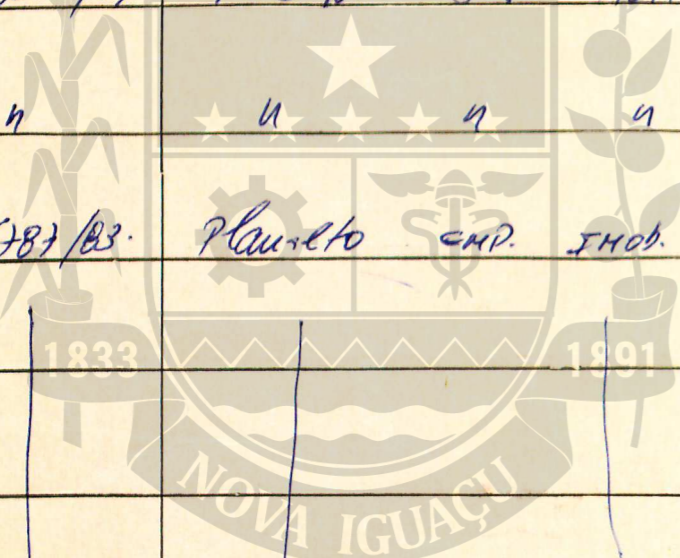 " " " "
787/83. Planalto EMP. IMOB.
1833 1891
NOVA IGUAÇU